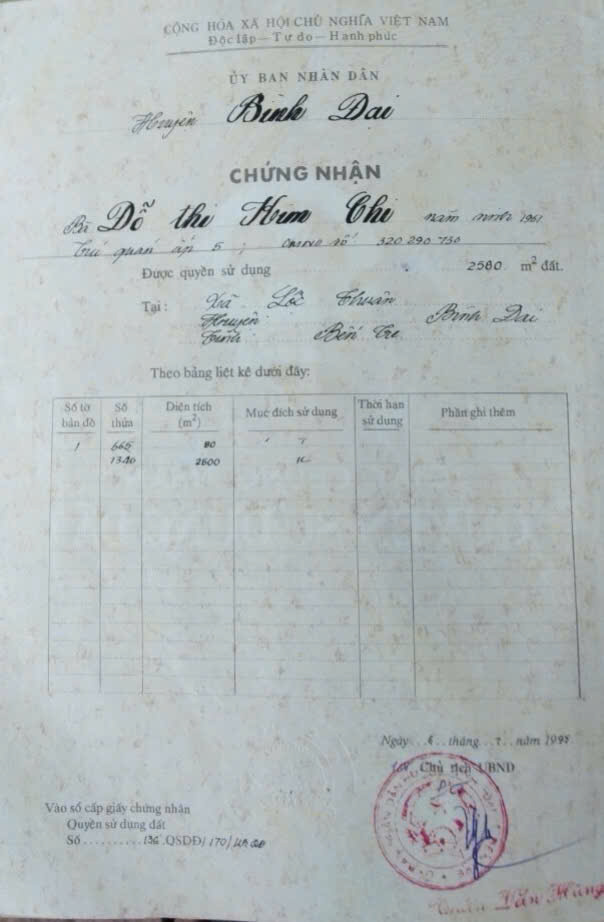 CỘNG HÒA XÃ HỘI CHỦ NGHĨA VIỆT NAM
Độc lập - Tự do - Hạnh phúc
ỦY BAN NHÂN DÂN
Huyện Bình Đại
CHỨNG NHẬN
Bà Đỗ thị Kim Chi năm sinh 1961
Trú quán ấp 5; CMND số: 320 290 730
Được quyền sử dụng 2580 m² đất.
Tại: Xã Lộc Thuận
Huyện Bình Đại
Tỉnh Bến Tre
Theo bảng liệt kê dưới đây:
Số tờ bản đồ Số thửa Diện tích (m²) Mục đích sử dụng Thời hạn sử dụng Phần ghi thêm
1 665 80 T
1340 2500
Ngày tháng năm 1995
Chủ tịch UBND
Vào sổ cấp giấy chứng nhận
Quyền sử dụng đất
Số QSDĐ/170/
Văn